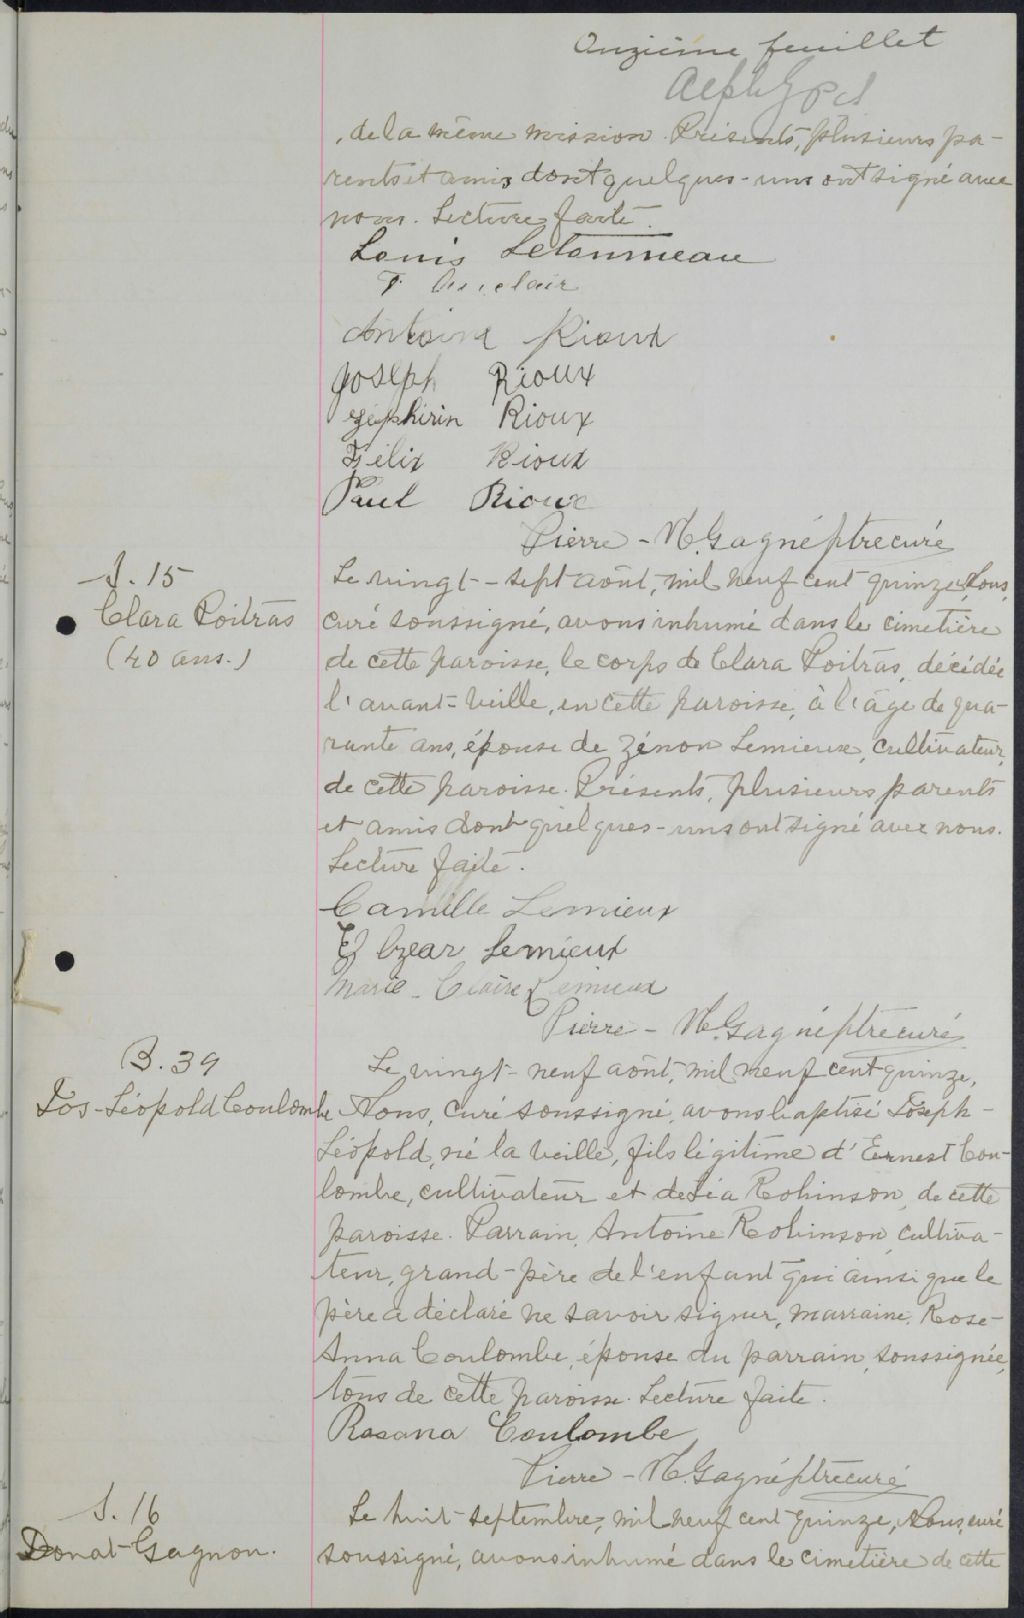 Onzième feuillet
, de la même mission. Présents, plusieurs pa-
rents et amis dont quelques-uns ont signé avec
nous. Lecture faite.
Louis Letourneau
F. Auclair
Antoine Rioux
Joseph Rioux
Zéphirin Rioux
Félix Rioux
Paul Rioux
Pierre-N. Gagné ptre curé
S. 15
Clara Poitras
(40 ans.)
Le vingt-sept août, mil neuf cent quinze, Nous,
curé soussigné, avons inhumé dans le cimetière
de cette paroisse, le corps de Clara Poitras, décédée
l'avant-veille, en cette paroisse, à l'âge de qua-
rante ans, épouse de Zénon Lemieux, cultivateur,
de cette paroisse. Présents, plusieurs parents
et amis dont quelques-uns ont signé avec nous.
Lecture faite.
Camille Lemieux
Elzear Lemieux
Marie-Claire Lemieux
Pierre-N. Gagné ptre curé
B. 39
Jos-Léopold Coulombe
Le vingt-neuf août, mil neuf cent quinze,
Nous, curé soussigné, avons baptisé Joseph-
Léopold, né la veille, fils légitime d'Ernest Cou-
lombe, cultivateur et de Léa Robinson, de cette
paroisse. Parrain, Antoine Robinson, cultiva-
teur, grand-père de l'enfant qui ainsi que le
père a déclaré ne savoir signer, marraine, Rose-
Anna Coulombe, épouse du parrain, soussignée,
tous de cette paroisse. Lecture faite.
Rosana Coulombe
Pierre-N. Gagné ptre curé
S. 16
Donat Gagnon.
Le huit septembre, mil neuf cent quinze, Nous, curé
soussigné, avons inhumé dans le cimetière de cette